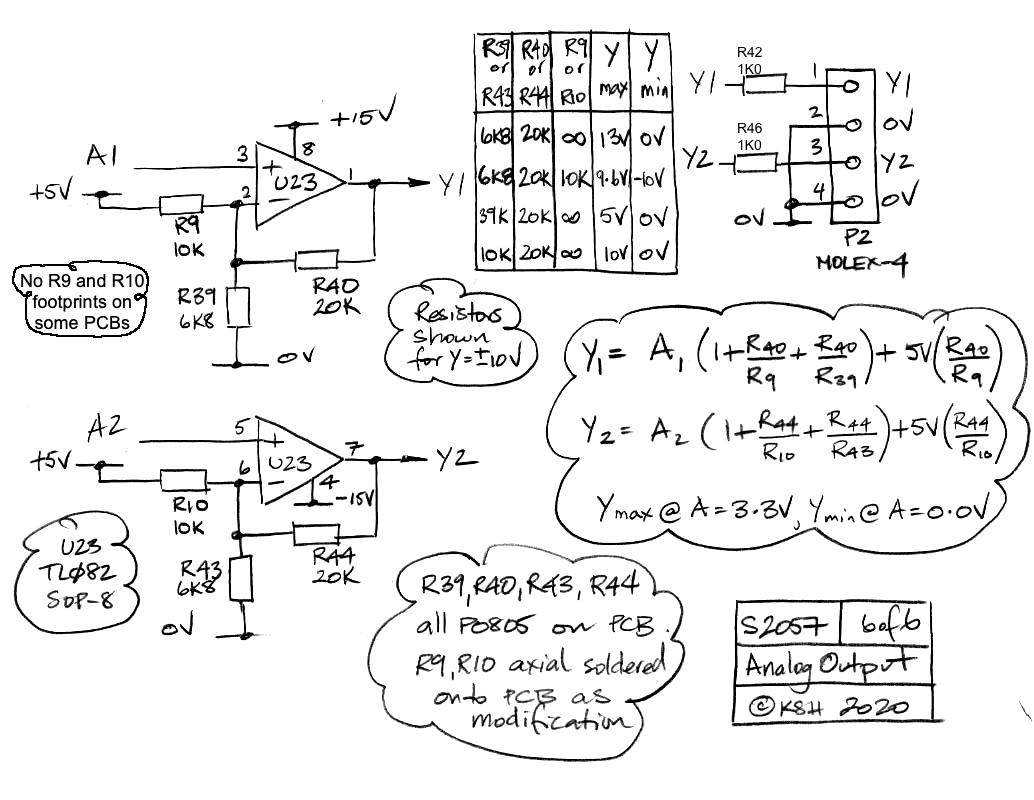 A1
+5V
+15V
3
+
8
U23
1
Y1
2
−
R9
10K
R39
6K8
R40
20K
0V
No R9 and R10
footprints on
some PCBs
R39 or R43 | R40 or R44 | R9 or R10 | Y max | Y min
6K8 20K ∞ 13V 0V
6K8 20K 10K 9.6V -10V
39K 20K ∞ 5V 0V
10K 20K ∞ 10V 0V
Resistors
shown
for Y=±10V
R42
1K0
Y1
1
Y1
2
0V
R46
1K0
Y2
3
Y2
4
0V
0V
P2
MOLEX-4
Y1 = A1 (1+R40/R9+R40/R39)+5V(R40/R9)
Y2 = A2 (1+R44/R10+R44/R43)+5V(R44/R10)
Ymax @ A=3.3V, Ymin @ A=0.0V
A2
+5V
5
+
U23
7
Y2
6
−
4
-15V
R10
10K
R43
6K8
R44
20K
0V
U23
TL082
SOP-8
R39,R40,R43, R44
all P0805 on PCB.
R9,R10 axial soldered
onto PCB as
modification
S2057 6of6
Analog Output
©KSH 2020